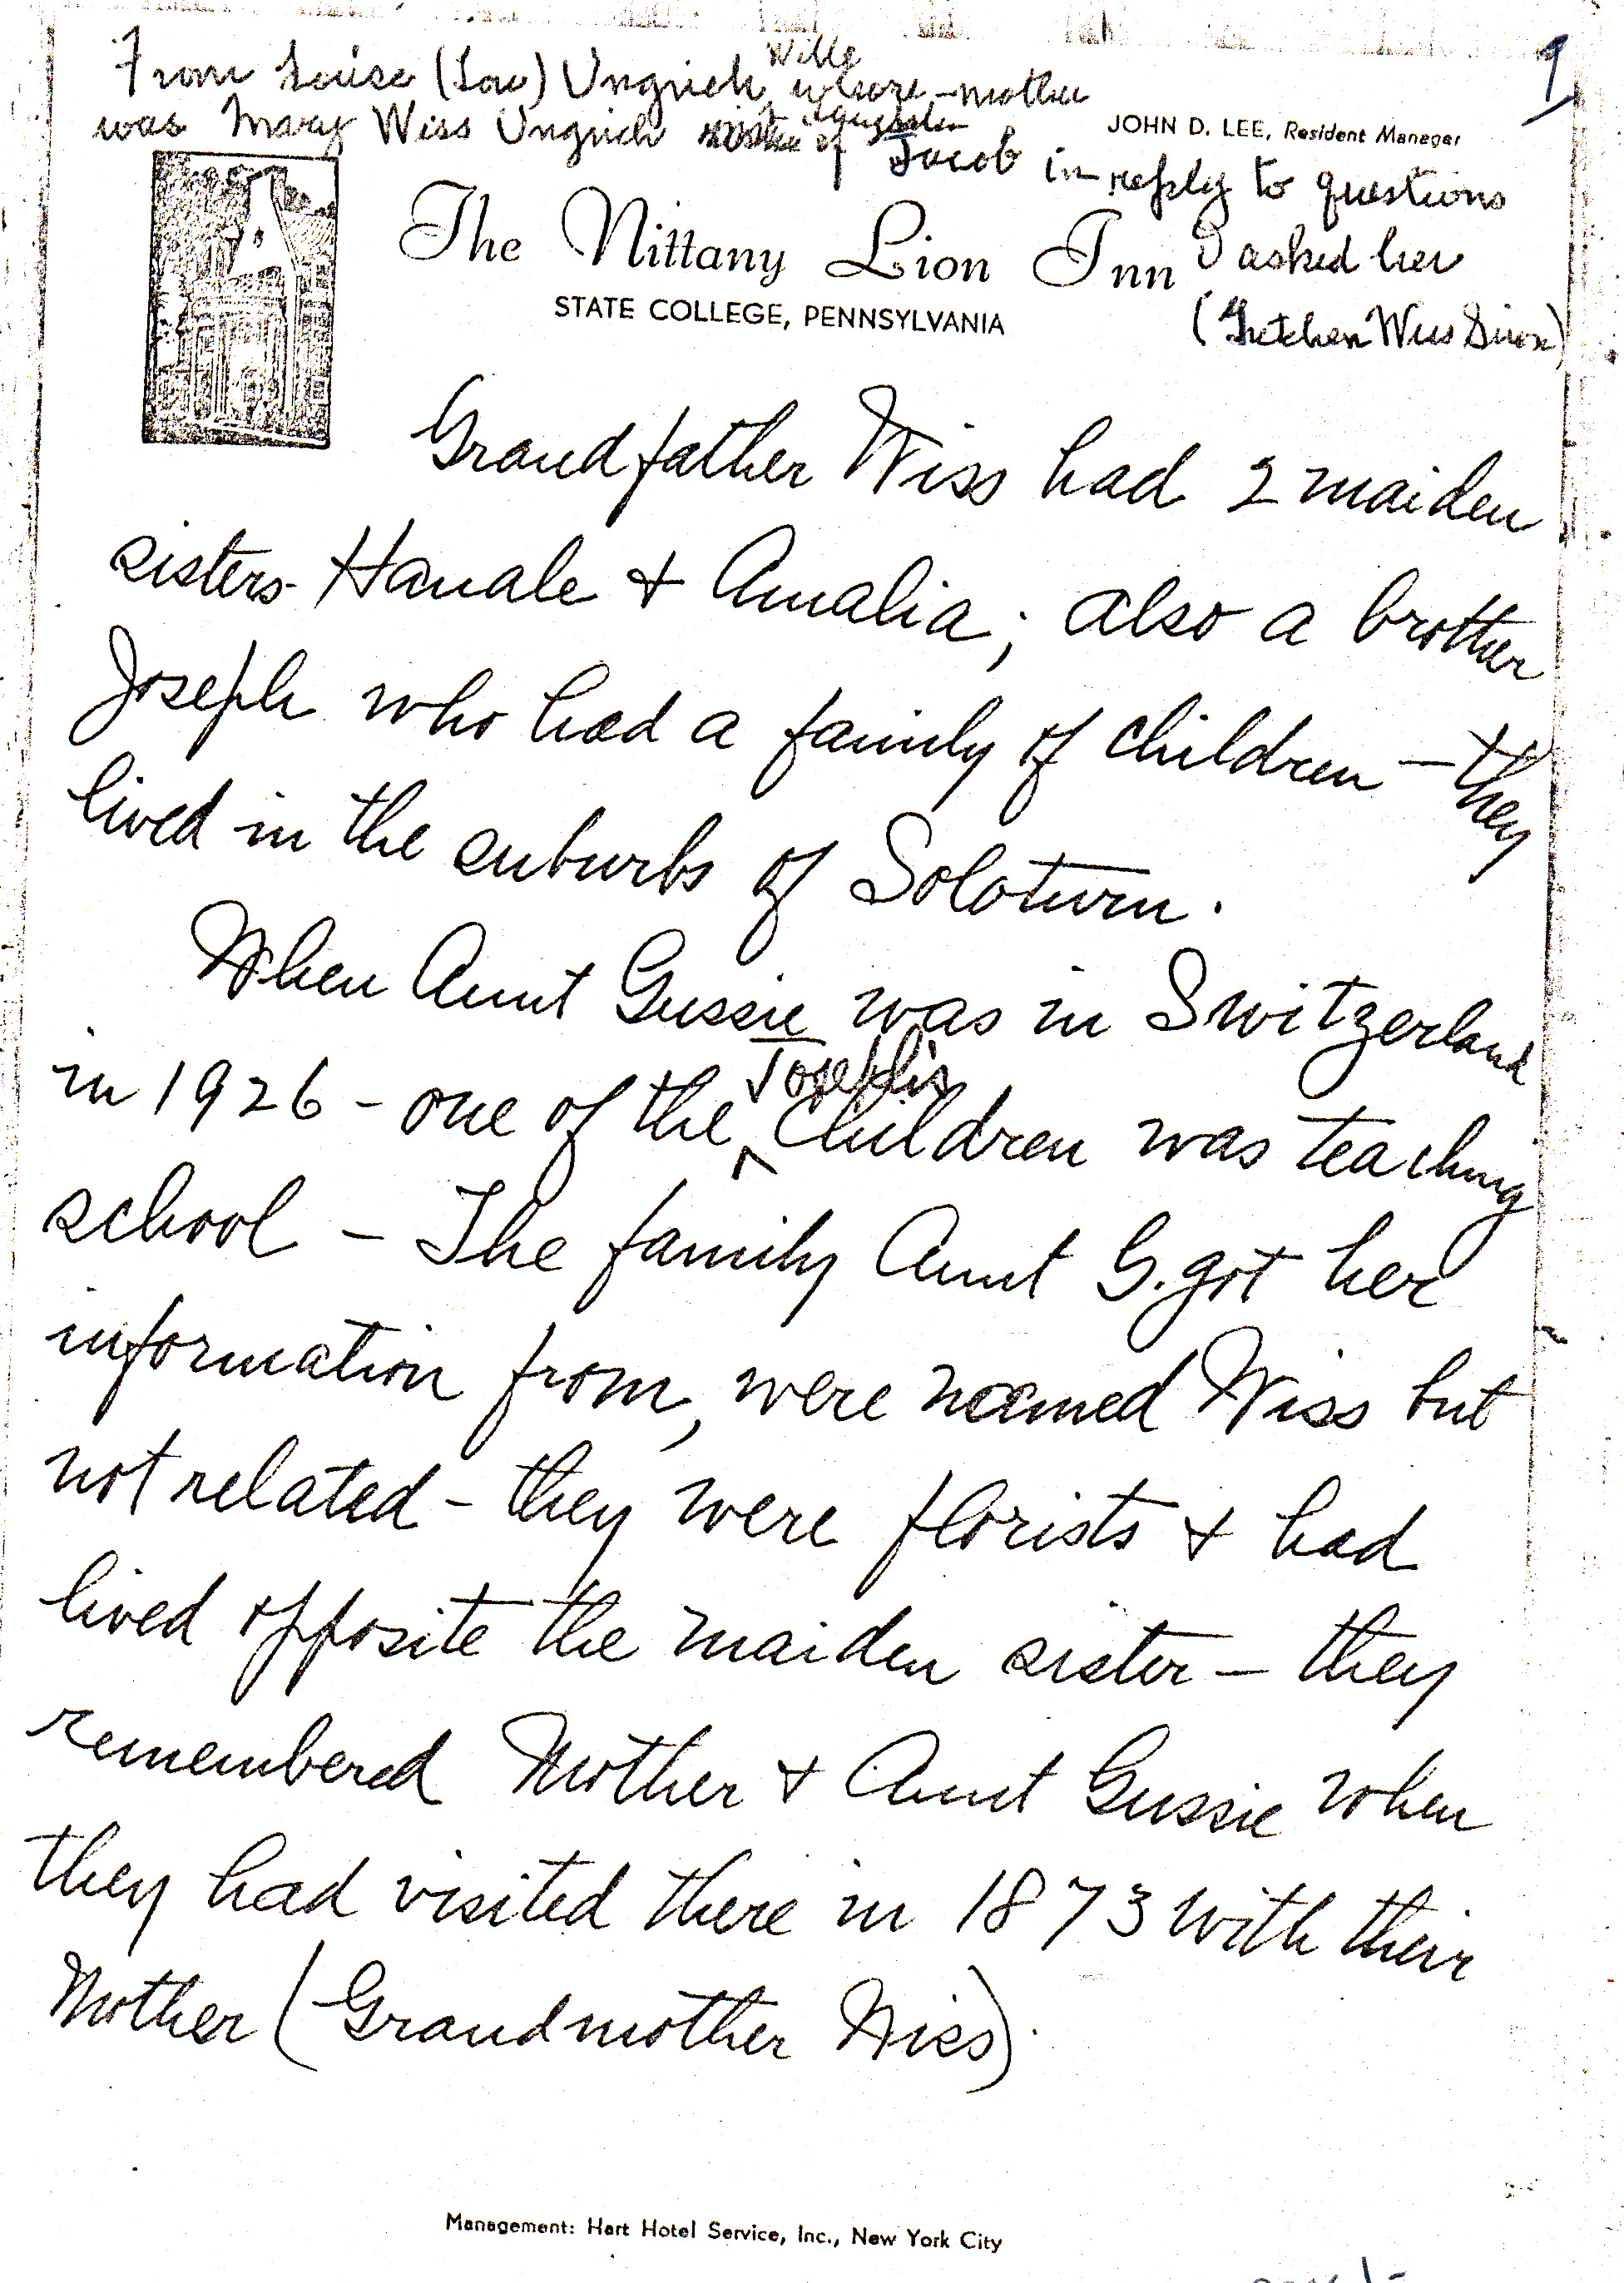 9
From Louise (Lou) Ungrich Wille, whose mother
was Mary Wiss Ungrich daughter of Jacob in reply to questions
I asked her
(Gretchen Wiss
JOHN D. LEE, Resident Manager
The Nittany Lion Inn
STATE COLLEGE, PENNSYLVANIA
Grandfather Wiss had 2 maiden
sisters Hanale + Amalia; also a brother
Joseph who had a family of children - they
lived in the suburbs of Soloturn.
When Aunt Gussie was in Switzerland
in 1926 - one of the Joseph's children was teaching
school - The family Aunt G. got her
information from, were named Wiss but
not related - they were florists + had
lived opposite the maiden sister - they
remembered Mother + Aunt Gussie when
they had visited there in 1873 with their
Mother (Grandmother Wiss).
Management: Hart Hotel Service, Inc., New York City